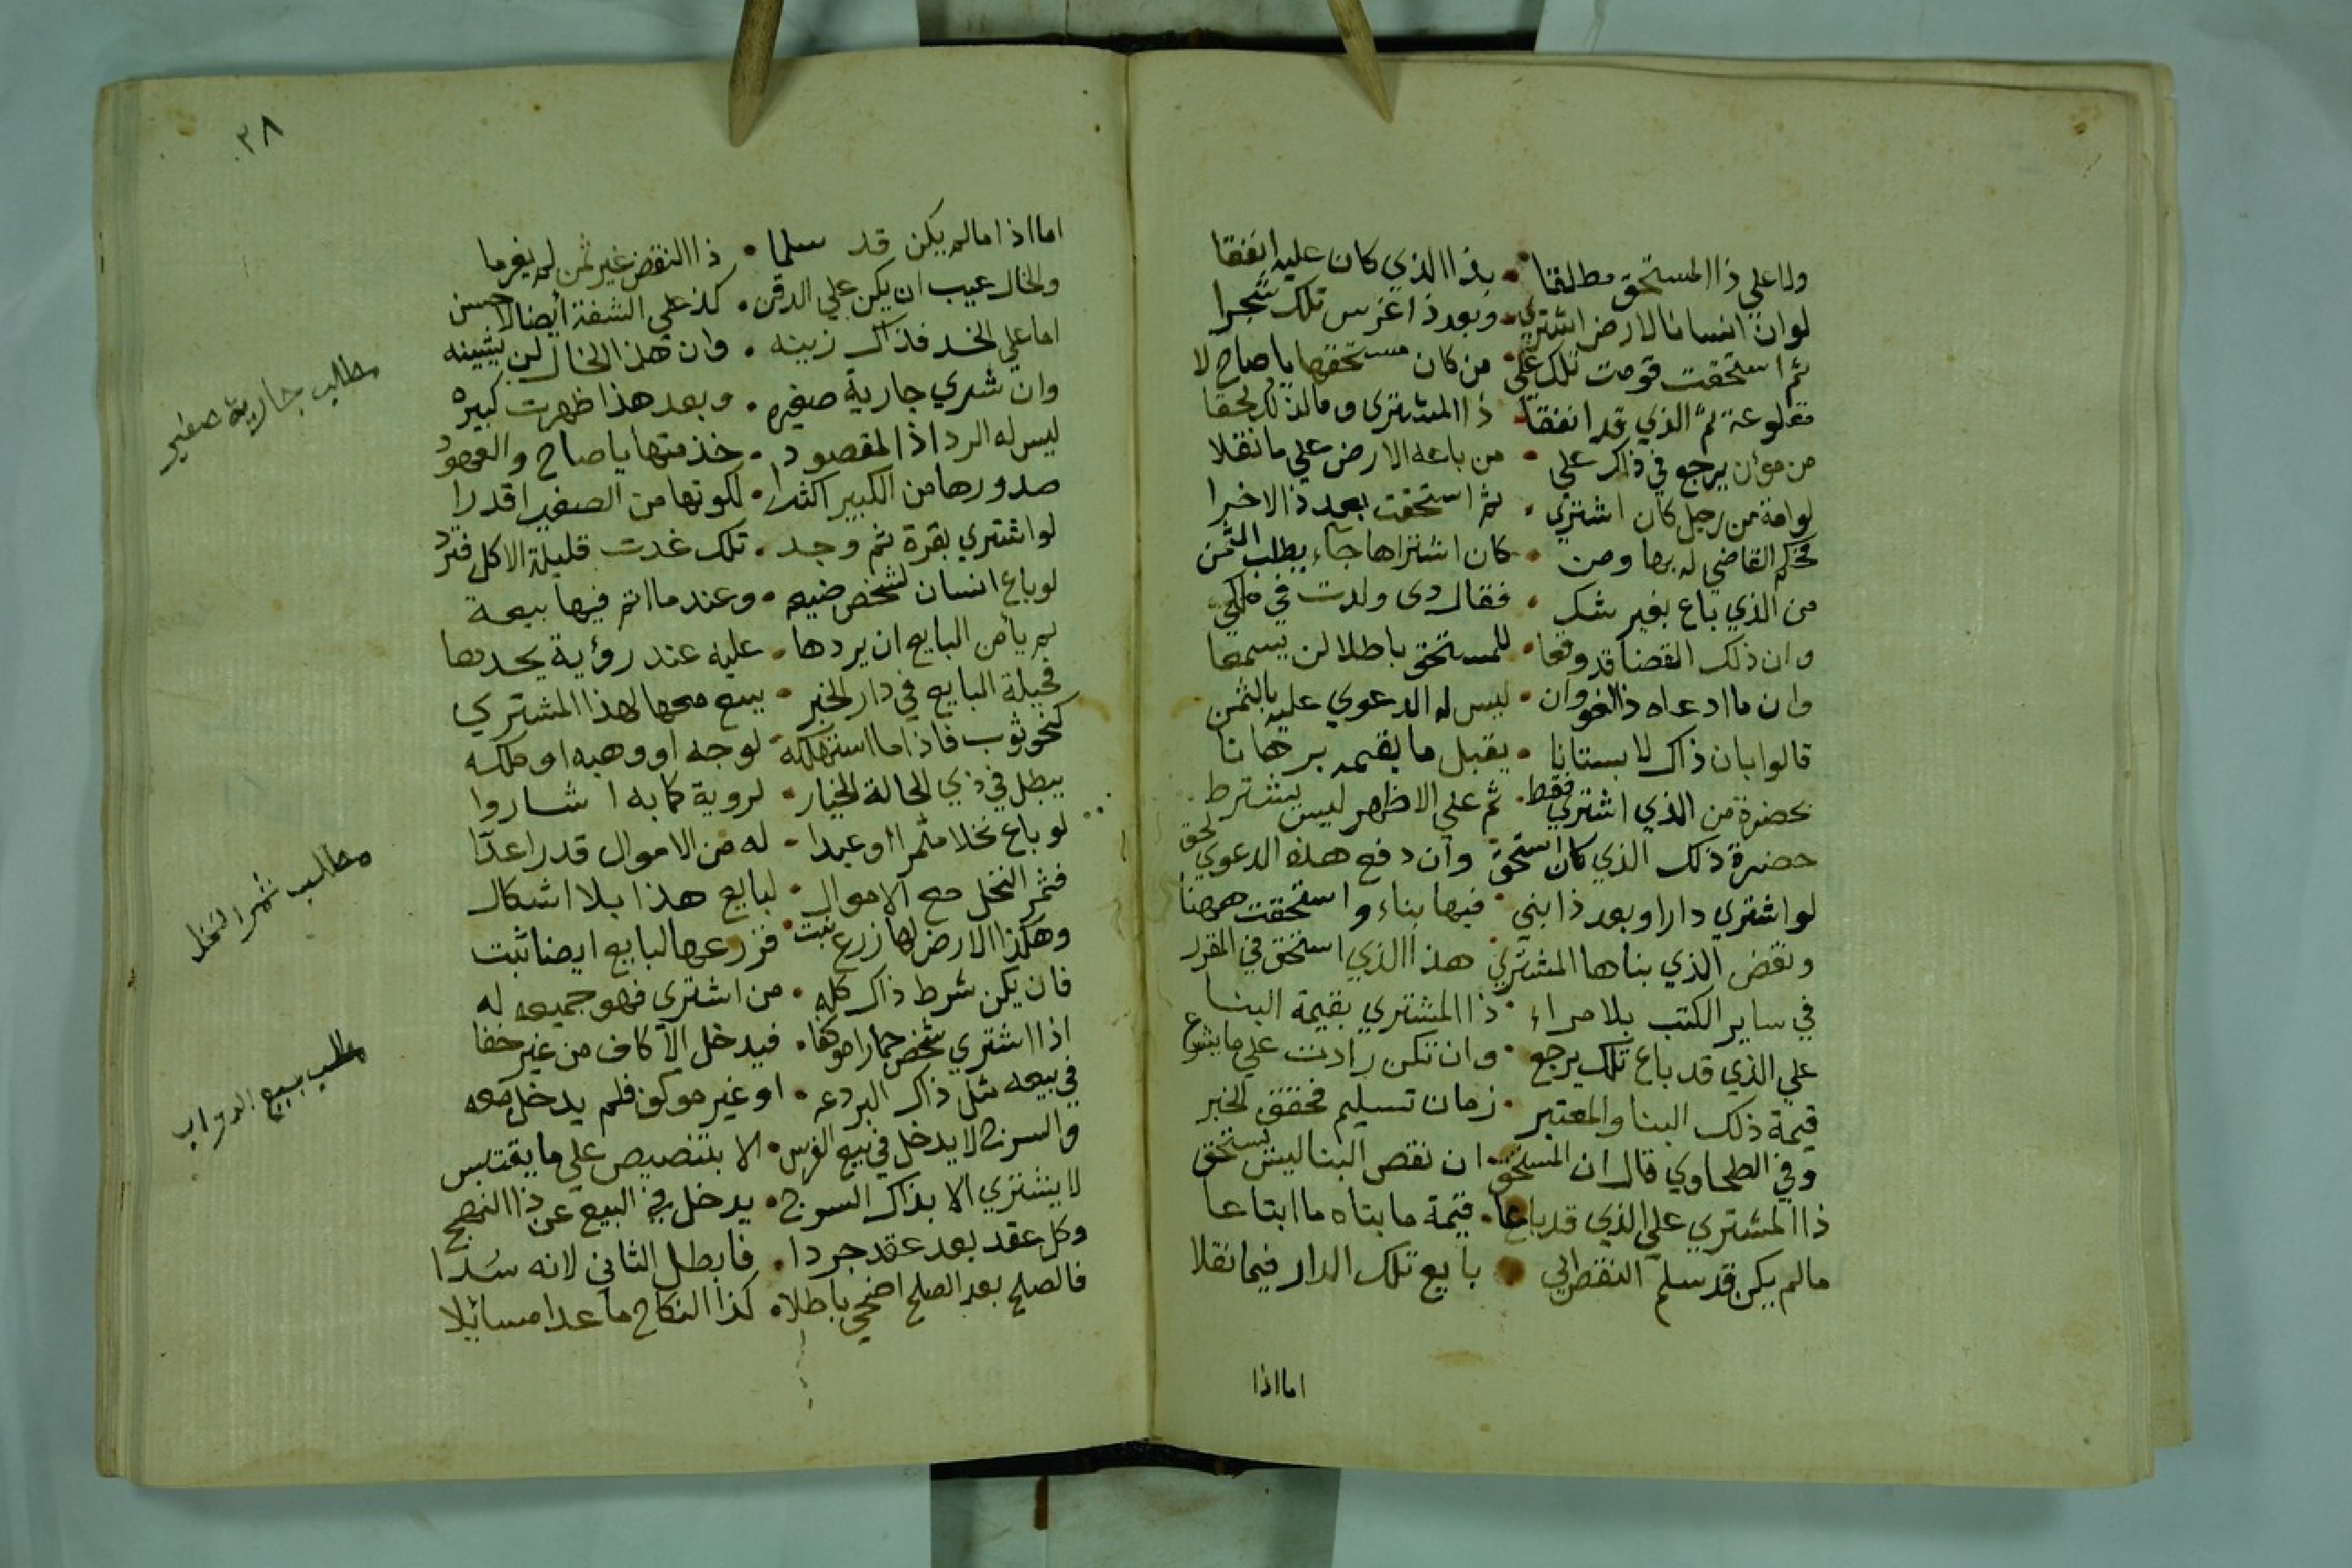 ولا علي ذا المستحق مطلقا • بذا الذي كان عليه انفقا
لو ان انسانا لارض اشتري • وبعد ذا غرس تلك شجرا
ثم استحقت قومت تلك علي • من كان مستحقها يا صاح لا
مقلوعة ثم الذي قد انفقا • ذا المشتري وما لذلك لحقا
من مؤن يرجع في ذاك علي • من باعه الارض علي ما نقلا
لو امة من رجل كان اشتري • ثم استحقت بعد ذا لاخرا
فحكم القاضي له بها ومن • كان اشتراها جآء يطلب الثمن
من الذي باع بغير شك • فقال دى ولدت في ملكي
وان ذلك القضا قد وقعا • للمستحق باطلا لن يسمعا
وان ما ادعاه ذا لغو وان • ليس له الدعوي عليه بالثمن
قالوا بان ذاك لا بستانا • يقبل ما يقيمه برهانا
بحضرة من الذي اشتري فقط • ثم علي الاظهر ليس يشترط
حضرة ذلك الذي كان استحق • وان دفع هذه الدعوي لحق
لو اشتري دارا وبعد ذا بني • فيها بناء واستحقت ههنا
ونقض الذي بناها المشتري • هذا الذي استحق في المقرر
في ساير الكتب بلا مراء • ذا المشتري بقيمة البنا
علي الذي قد باع تلك يرجع • وان تكن زادت علي ما يشرع
قيمة ذلك البنا والمعتبر • زمان تسليم فحقق الخبر
وفي الطحاوي قال ان المستحق • ان نقص البنا ليس يستحق
ذا المشتري علي الذي قد باعا • قيمة ما بناه ما ابتاعا
ما لم يكن قد سلم النقض الي • بايع تلك الدار فيما نقلا
اما اذا
٣٨
اما اذا ما لم يكن قد سلما • ذا النقض غير ثمن لم يغرما
والخال عيب ان يكن علي الدقن • كذ علي الشفة أيضا لا حسن
اما علي الخد فذاك زينه • وان هذا الخال لن يشينه
وان شري جارية صغيره • وبعد هذا ظهرت كبيره
مطلب جارية صغير
ليس له الرد اذ المقصود • خذمتها يا صاح والمعهود
صدورها من الكبير اكثرا • لكونها من الصغير اقدرا
لو اشتري بقرة ثم وجد • تلك غدت قليلة الاكل فترد
لو باع انسان لشخص ضيعه • وعندما اتم فيها بيعة
لم يأمن البايع ان يردها • عليه عند رؤية يحدها
فحيلة البايع في دار الخبر • يبيع معها لهذا المشتري
كنحو ثوب فاذا ما استهلكه • لوجه او وهبه او ملكه
يبطل في ذي الحالة الخيار • لروية كما به اشاروا
لو باع نخلا مثمرا او عبدا • له من الاموال قدرا عدّا
مطلب ثمر النخل
فثمر النخل مع الاموال • لبايع هذا بلا اشكال
وهكذا الارض لها زرع نبت • فزرعها لبايع ايضا ثبت
فان يكن شرط ذاك كله • من اشتري فهو جميعه له
اذا اشتري شخص حمارا موكفا • فيدخل الآكاف من غير خفا
مطلب بيع الدواب
في بيعه مثل ذاك البردعه • او غير موكف فلم يدخل معه
والسرج لا يدخل في بيع الفرس • الا بتنصيص علي ما يقتبس
لا يشتري الا بذاك السرج • يدخل في البيع عن ذا النهج
وكل عقد بعد عقد جردا • فابطل الثاني لانه سُدا
فالصلح بعد الصلح اضحي باطلا • كذا النكاح ما عدا مسائلا